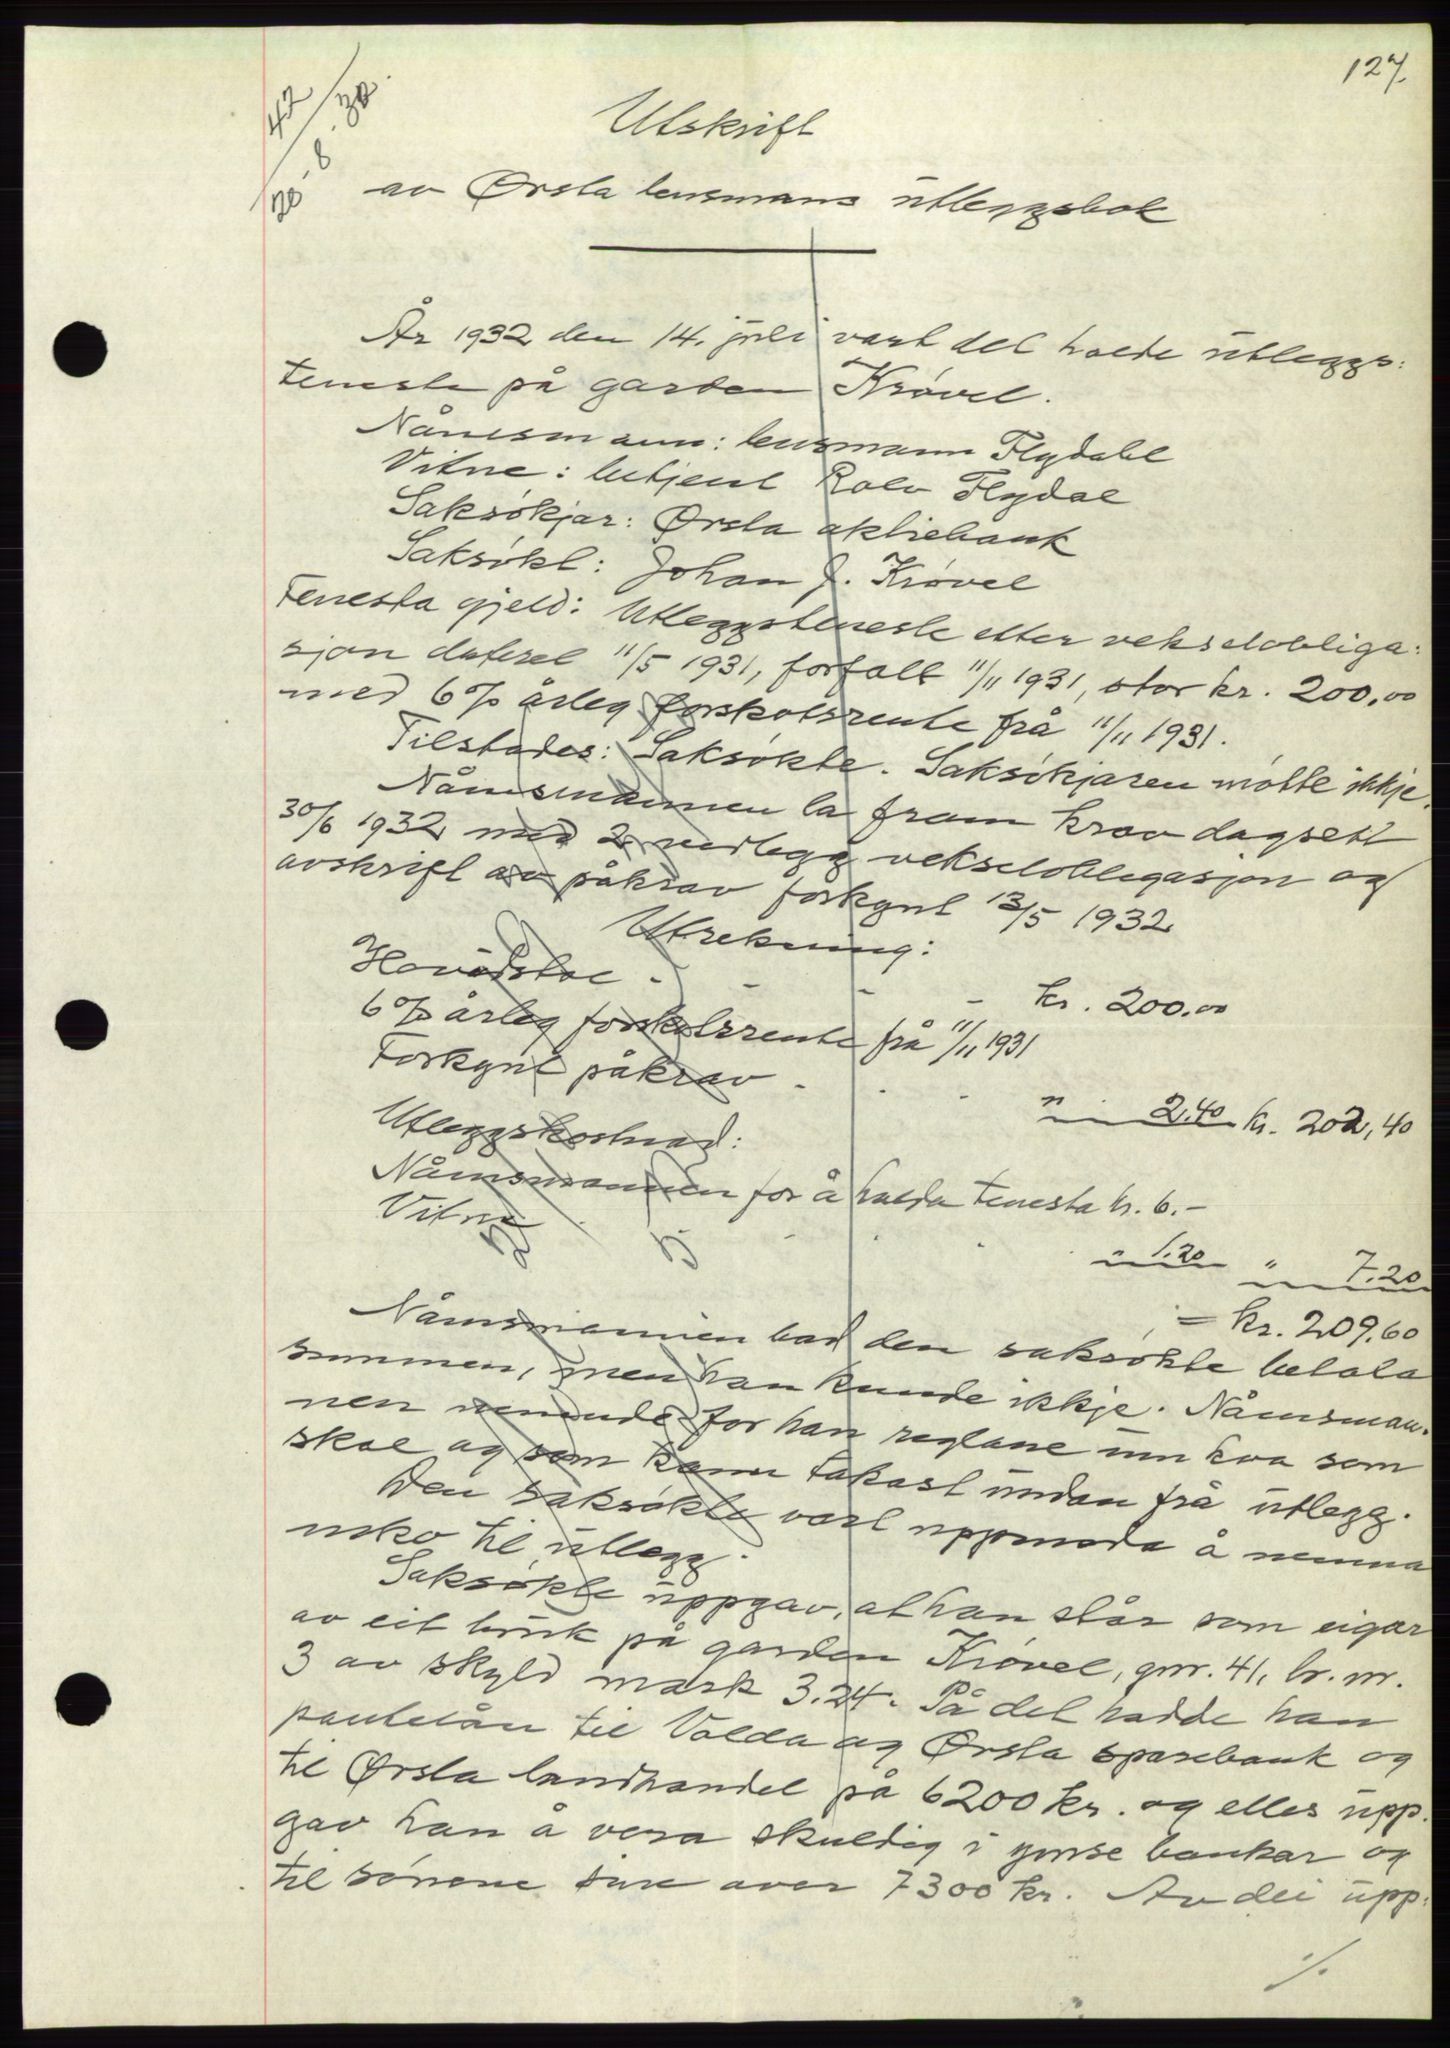 127.
42
20-8-32.
Utskrift
av Ørsta lensmans utleggsbok
År 1932 den 14. juli vart det halde utleggs:
teneste på garden Krøvel.
Nåmsmann: lensmann Flydahl
Vitne: betjent Rolv Flydal
Saksøkjar: Ørsta aktiebank
Saksøkt: Johan J. Krøvel
Tenesta gjeld: Utleggsteneste etter vekselobliga:
sjon datert 11/5 1931, forfalt 11/11 1931, stor kr. 200,00
med 6% årleg forskotsrente frå 11/11 1931.
Tilstades: Saksøkte. Saksøkjaren møtte ikkje.
Nåmsmannen la fram krav dagsett
30/6 1932 med 2 vedlegg vekselobligasjon og
avskrift av påkrav forkynt 13/5 1932
Utrekning:
Hovudstol - - - - kr. 200.00
6% årleg forskotsrente frå 11/11 1931
Forkynt påkrav - - - " 2.40 kr. 202,40
Utleggskostnad:
Nåmsmannen for å halda tenesta kr. 6.-
Vitne - - - " 1.20 " 7.20
= kr. 209.60
Nåmsmannen bad den saksøkte betala
summen, men han kunde ikkje. Nåmsman-
nen nemnde for han reglane um kva som
skal og som kann takast undan frå utlegg.
Den saksøkte vart uppmoda å nemna
noko til utlegg.
Saksøkte uppgav, at han står som eigar
av eit bruk på garden Krøvel, gnr. 41, br. nr.
3 av skyld mark 3.24. På det hadde han
pantelån til Volda og Ørsta sparebank og
til Ørsta landhandel på 6200 kr. og elles upp-
gav han å vera skuldig i ymse bankar og
til sønene sine over 7300 kr. Av dei upp:
./.